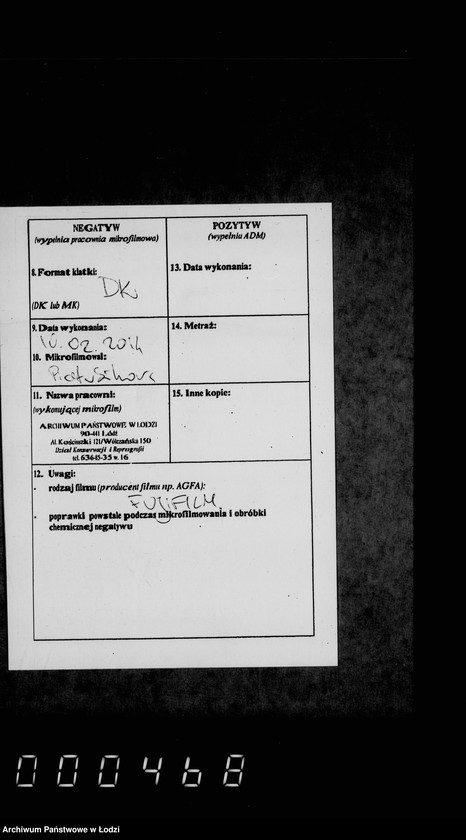 NEGATYW
(wypełnia pracownia mikrofilmowa)
POZYTYW
(wypełnia ADM)
8. Format klatki:
DK
(DK lub MK)
13. Data wykonania:
9. Data wykonania:
10.02.2014
14. Metraż:
10. Mikrofilmował:
11. Nazwa pracowni:
(wykonującej mikrofilm)
ARCHIWUM PAŃSTWOWE W ŁODZI
90-441 Łódź
Al. Kościuszki 121/Wólczańska 150
Dział Konserwacji i Reprografii
tel. 63645-35 w. 16
15. Inne kopie:
12. Uwagi:
- rodzaj filmu (producent filmu np. AGFA):
FUJIFILM
- poprawki powstałe podczas mikrofilmowania i obróbki
chemicznej negatywu
000468
Archiwum Państwowe w Łodzi